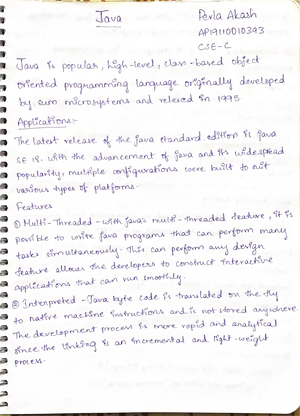 Java
Perla Akash
AP19110010393
CSE-C
Java is popular, high-level, class-based object
oriented programming language originally developed
by sum microsystems and relesed in 1995
Applications:-
The latest release of the java standard edition is java
SE 18. with the advancement of java and its widespread
popularity, multiple configurations were built to suit
various types of platforms.
Features
① Multi-Threaded - with java's multi-threaded feature, it is
possible to write java programs that can perform many
tasks simultaneously. This can perform any design
feature allows the developers to construct interactive
applications that can run smoothly.
② Interpreted - Java byte code is translated on the fly
to native machine instructions and is not stored anywhere
The development process is more rapid and analytical
since the linking is an incremental and light-weight
process.